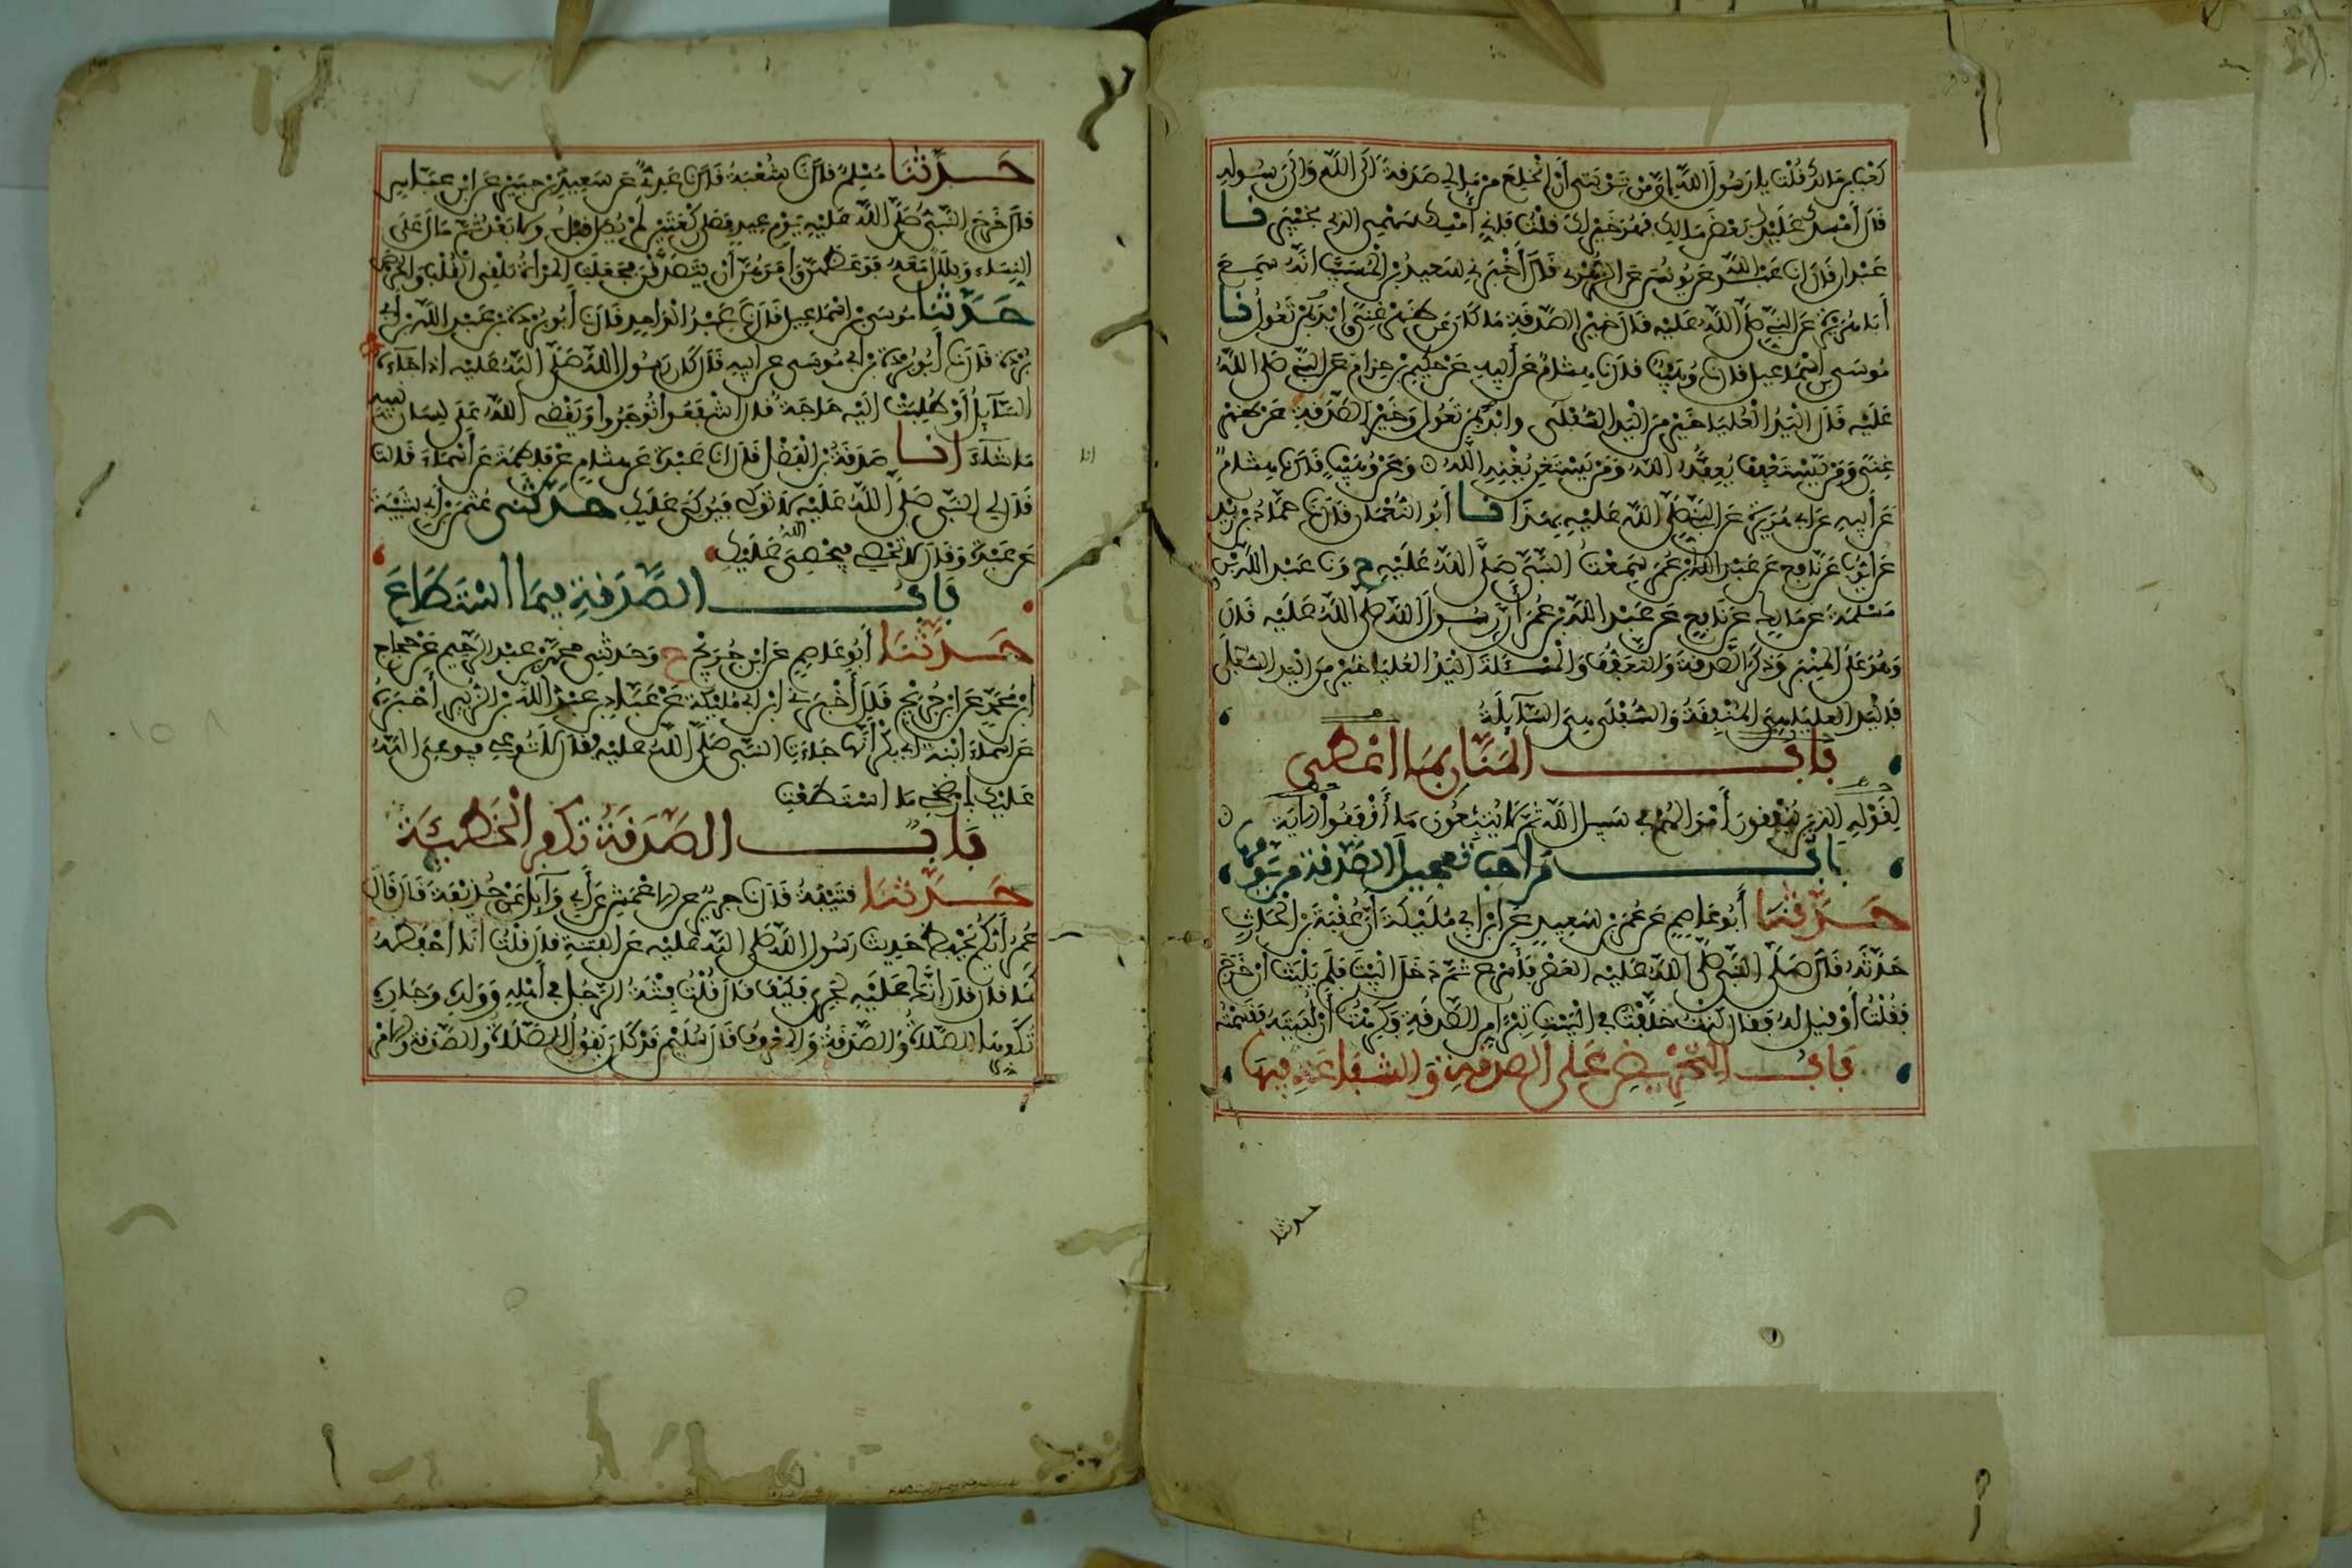 كَعْب بن مَالك قُلْتُ يا رَسُولَ اللهِ إن مِنْ تَوْبَتِى أَنْ أنْخَلِعَ مِنْ مَالِي صَدَقةً إلَى اللهِ وَإلَى رَسُولِهِ
قَالَ أَمْسِكْ عَلَيْكَ بَعْضَ مَالِكَ فَهُوَ خَيْرٌ لَكَ قلْتُ فَإني أُمْسِكُ سَهْمِى الذِى بخَيْبَرَ نا
عَبْدَان قَالَ نا عَبْدُ اللهِ عَن يُونُسَ عَن الزُّهْرِي قَالَ أَخْبَرَنِي سَعِيدُ بْنُ الْمُسَيِّبِ أنَّهُ سَمِعَ
أَبَا هُرَيْرَةَ عَنِ النَّبِيِّ صَلَّى اللهُ عَلَيْهِ قَالَ خَيْرُ الصَّدَقَةِ مَا كَانَ عَن ظَهْرِ غِنًى وَابْدَأْ بِمَنْ تَعُولُ نا
مُوسَى بن إسْمَاعِيل قَالَ نا وُهَيْبٌ قَالَ نا هِشَامٌ عَنْ أَبِيهِ عَنْ حَكِيمِ بْنِ حِزَامٍ عَنِ النَّبِيِّ صَلَّى اللهُ
عَلَيْهِ قَالَ الْيَدُ الْعُلْيَا خَيْرٌ مِنَ الْيَدِ السُّفْلَى وابْدَأْ بِمَنْ تَعُولُ وَخَيْرُ الصَّدَقَةِ عَنْ ظَهْرِ
غِنًى وَمَنْ يَسْتَعْفِفْ يُعِفَّهُ اللهُ وَمَنْ يَسْتَغْنِ يُغْنِهِ اللهُ وَعَنْ وُهَيْبٍ قَالَ نا هِشَامٌ
عَنْ أَبِيهِ عَنْ أبِي هُرَيْرَةَ عَنِ النَّبِيِّ صَلَّى اللهُ عَلَيْهِ بِهَذَا نا أَبُو النُّعْمَانِ قَالَ نا حَمَّادُ بْنُ زَيْدٍ
عَنْ أيُّوبَ عَنْ نَافِعٍ عَنْ عَبْدِ اللهِ بْنِ عُمَرَ سَمِعْتُ النَّبِيَّ صَلَّى اللهُ عَلَيْهِ ح وَنا عَبْدُ اللهِ بْنُ
مَسْلَمَةَ عَنْ مَالِكٍ عَنْ نَافِعٍ عَنْ عَبْدِ اللهِ بْنِ عُمَرَ أَنَّ رَسُولَ اللهِ صَلَّى اللهُ عَلَيْهِ قَالَ
وَهُوَ عَلَى الْمِنْبَرِ وَذَكَرَ الصَّدَقَةَ وَالتَّعَفُّفَ وَالْمَسْئَلَةَ الْيَدُ الْعُلْيَا خَيْرٌ مِنَ الْيَدِ السُّفْلَى
فَالْيَدُ الْعُلْيَا هِيَ الْمُنْفِقَةُ وَالسُّفْلَى هِيَ السَّائِلَةُ
بَابُ الْمَنَّانِ بِمَا أَعْطَى
لِقَوْلِهِ الذِينَ يُنْفِقُونَ أَمْوَالَهُمْ فِي سَبِيلِ اللهِ ثُمَّ لَا يُتْبِعُونَ مَا أَنْفَقُوا الْآيَةَ
بابُ مَنْ أَحَبَّ تَعْجِيلَ الصَّدَقَةِ مِنْ يَوْمِهَا
حَدَّثَنَا أَبُو عَاصِمٍ عَنْ عُمَرَ بْنِ سَعِيدٍ عَنِ ابْنِ أَبِي مُلَيْكَةَ أَنَّ عُقْبَةَ بْنَ الْحَارِثِ
حَدَّثَهُ قَالَ صَلَّى النَّبِيُّ صَلَّى اللهُ عَلَيْهِ الْعَصْرَ فَأَسْرَعَ ثُمَّ دَخَلَ الْبَيْتَ فَلَمْ يَلْبَثْ أَنْ خَرَجَ
فَقُلْتُ أَوْ قِيلَ لَهُ فَقَالَ كُنْتُ خَلَّفْتُ فِي الْبَيْتِ تِبْرًا مِنَ الصَّدَقَةِ فَكَرِهْتُ أَنْ أُبَيِّتَهُ فَقَسَمْتُهُ
بَابُ التَّحْرِيضِ عَلَى الصَّدَقَةِ وَالشَّفَاعَةِ فِيهَا
حدثنا
حَدَّثَنَا مُسْلِمٌ قَالَ نا شُعْبَةُ قَالَ نا عَدِيٌّ عَنْ سَعِيدِ بْنِ جُبَيْرٍ عَنِ ابْنِ عَبَّاسٍ
قَالَ خَرَجَ النَّبِيُّ صَلَّى اللهُ عَلَيْهِ يَوْمَ عِيدٍ فَصَلَّى رَكْعَتَيْنِ لَمْ يُصَلِّ قَبْلُ وَلَا بَعْدُ ثُمَّ مَالَ عَلَى
النِّسَاءِ وَبِلَالٌ مَعَهُ فَوَعَظَهُنَّ وَأَمَرَهُنَّ أَنْ يَتَصَدَّقْنَ فَجَعَلَتِ الْمَرْأَةُ تُلْقِي الْقُلْبَ وَالْخُرْصَ
حَدَّثَنَا مُوسَى بْنُ إسْمَاعِيلَ قَالَ نا عَبْدُ الْوَاحِدِ قَالَ نا أَبُو بُرْدَةَ بْنُ عَبْدِ اللهِ بْنِ أَبِي
بُرْدَةَ قَالَ نا أَبُو بُرْدَةَ بْنُ أَبِي مُوسَى عَنْ أَبِيهِ قَالَ كَانَ رَسُولُ اللهِ صَلَّى اللهُ عَلَيْهِ إذَا جَاءَهُ
السَّائِلُ أَوْ طُلِبَتْ إلَيْهِ حَاجَةٌ قَالَ اشْفَعُوا تُؤْجَرُوا وَيَقْضِي اللهُ عَلَى لِسَانِ نَبِيِّهِ
مَا شَاءَ انا صَدَقَةُ بْنُ الْفَضْلِ قَالَ انا عَبْدَةُ عَنْ هِشَامٍ عَنْ فَاطِمَةَ عَنْ أَسْمَاءَ قَالَتْ
قَالَ لِي النَّبِيُّ صَلَّى اللهُ عَلَيْهِ لَا تُوكِي فَيُوكَى عَلَيْكِ حَدَّثَنِي عُثْمَنُ بْنُ أَبِي شَيْبَةَ
عَنْ عَبْدَةَ وَقَالَ لَا تُحْصِي فَيُحْصِيَ اللهُ عَلَيْكِ
بَابُ الصَّدَقَةِ فِيمَا اسْتَطَاعَ
حَدَّثَنَا أَبُو عَاصِمٍ عَنِ ابْنِ جُرَيْجٍ ح وَحَدَّثَنِي مُحَمَّدُ بْنُ عَبْدِ الرَّحِيمِ عَنْ حَجَّاجِ
ابْنِ مُحَمَّدٍ عَنِ ابْنِ جُرَيْجٍ قَالَ أَخْبَرَنِي ابْنُ أَبِي مُلَيْكَةَ عَنْ عَبَّادِ بْنِ عَبْدِ اللهِ بْنِ الزُّبَيْرِ أَخْبَرَهُ
عَنْ أَسْمَاءَ ابْنَةِ أَبِي بَكْرٍ أَنَّهَا جَاءَتِ النَّبِيَّ صَلَّى اللهُ عَلَيْهِ فَقَالَ لَا تُوعِي فَيُوعِيَ اللهُ
عَلَيْكِ ارْضَخِي مَا اسْتَطَعْتِ
بَابٌ الصَّدَقَةُ تُكَفِّرُ الْخَطِيئَةَ
حَدَّثَنَا قُتَيْبَةُ قَالَ نا جَرِيرٌ عَنِ الْأَعْمَشِ عَنْ أَبِي وَائِلٍ عَنْ حُذَيْفَةَ قَالَ قَالَ
عُمَرُ أَيُّكُمْ يَحْفَظُ حَدِيثَ رَسُولِ اللهِ صَلَّى اللهُ عَلَيْهِ عَنِ الْفِتْنَةِ قَالَ قُلْتُ أَنَا أَحْفَظُهُ
كَمَا قَالَ قَالَ إنَّكَ عَلَيْهِ لَجَرِيءٌ فَكَيْفَ قَالَ قُلْتُ فِتْنَةُ الرَّجُلِ فِي أَهْلِهِ وَوَلَدِهِ وَجَارِهِ
تُكَفِّرُهَا الصَّلَاةُ وَالصَّدَقَةُ وَالْمَعْرُوفُ قَالَ سُلَيْمَنُ قَدْ كَانَ يَقُولُ الصَّلَاةُ وَالصَّدَقَةُ وَالْأَمْرُ